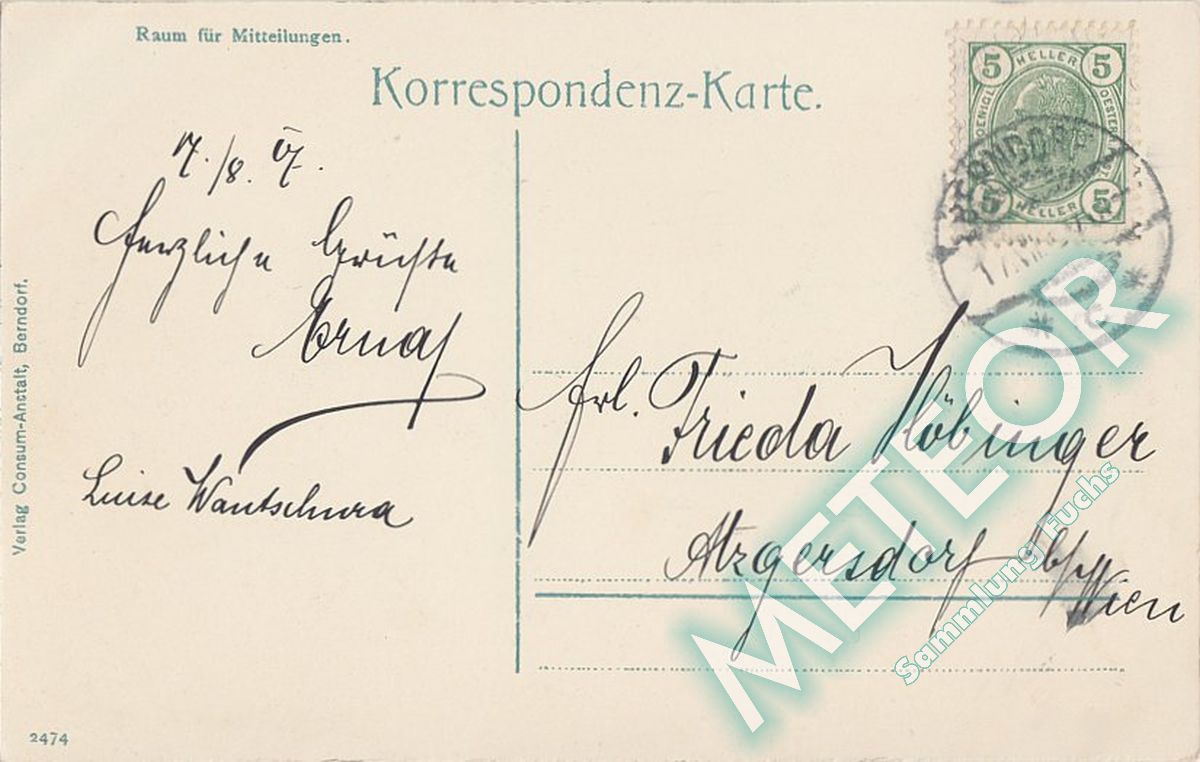 Raum für Mitteilungen.
Korrespondenz-Karte.
5 HELLER 5
5 HELLER 5
BERNDORF
17./8. 07.
Herzliche Grüße
Erna
Luise Wantschura
Frl. Frieda Höbinger
Atzgersdorf b/Wien
Verlag Consum-Anstalt, Berndorf.
2474
METEOR
Sammlung Fuchs